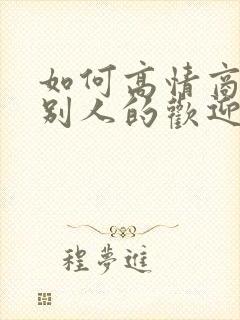 如何高情商
别人的歡迎
程夢進